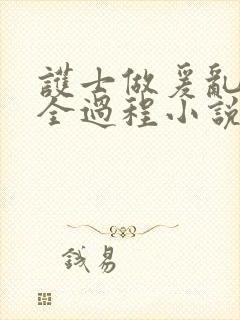 護士做爰亂
全過程小說
錢易